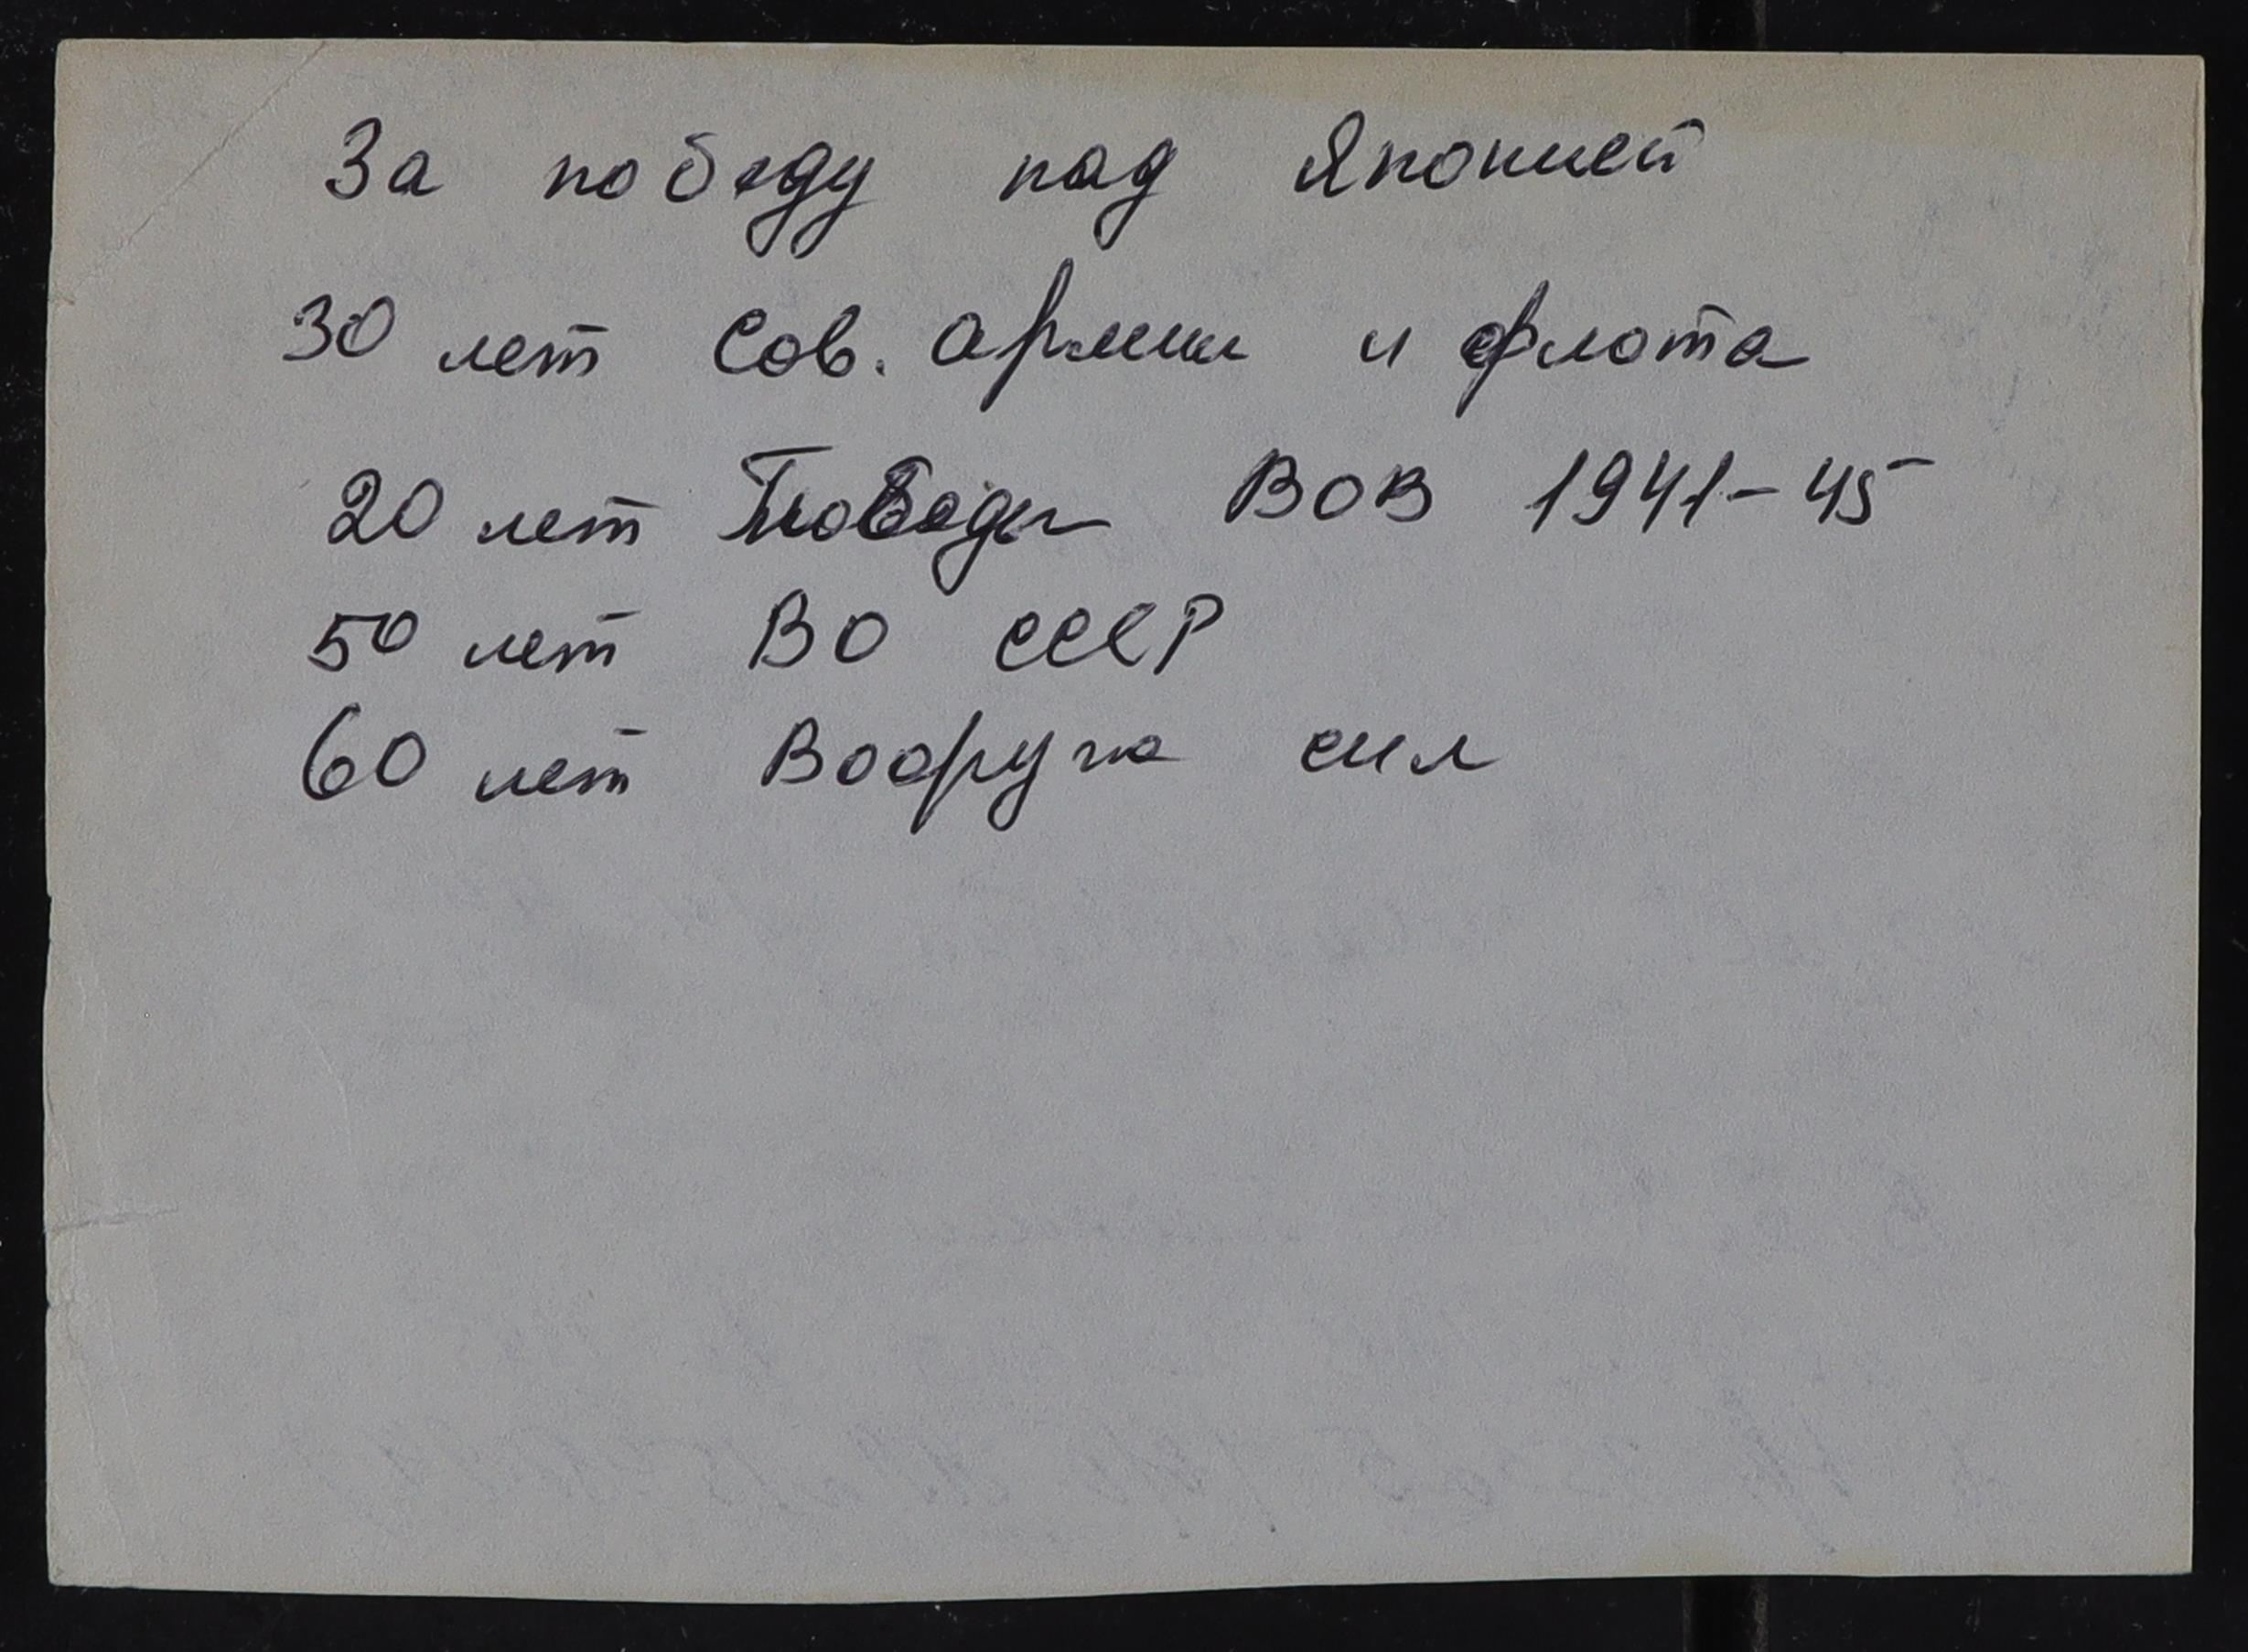 За победу над Японией
30 лет Сов. армии и флота
20 лет Победы ВОВ 1941-45
50 лет ВО СССР
60 лет Вооруж сил